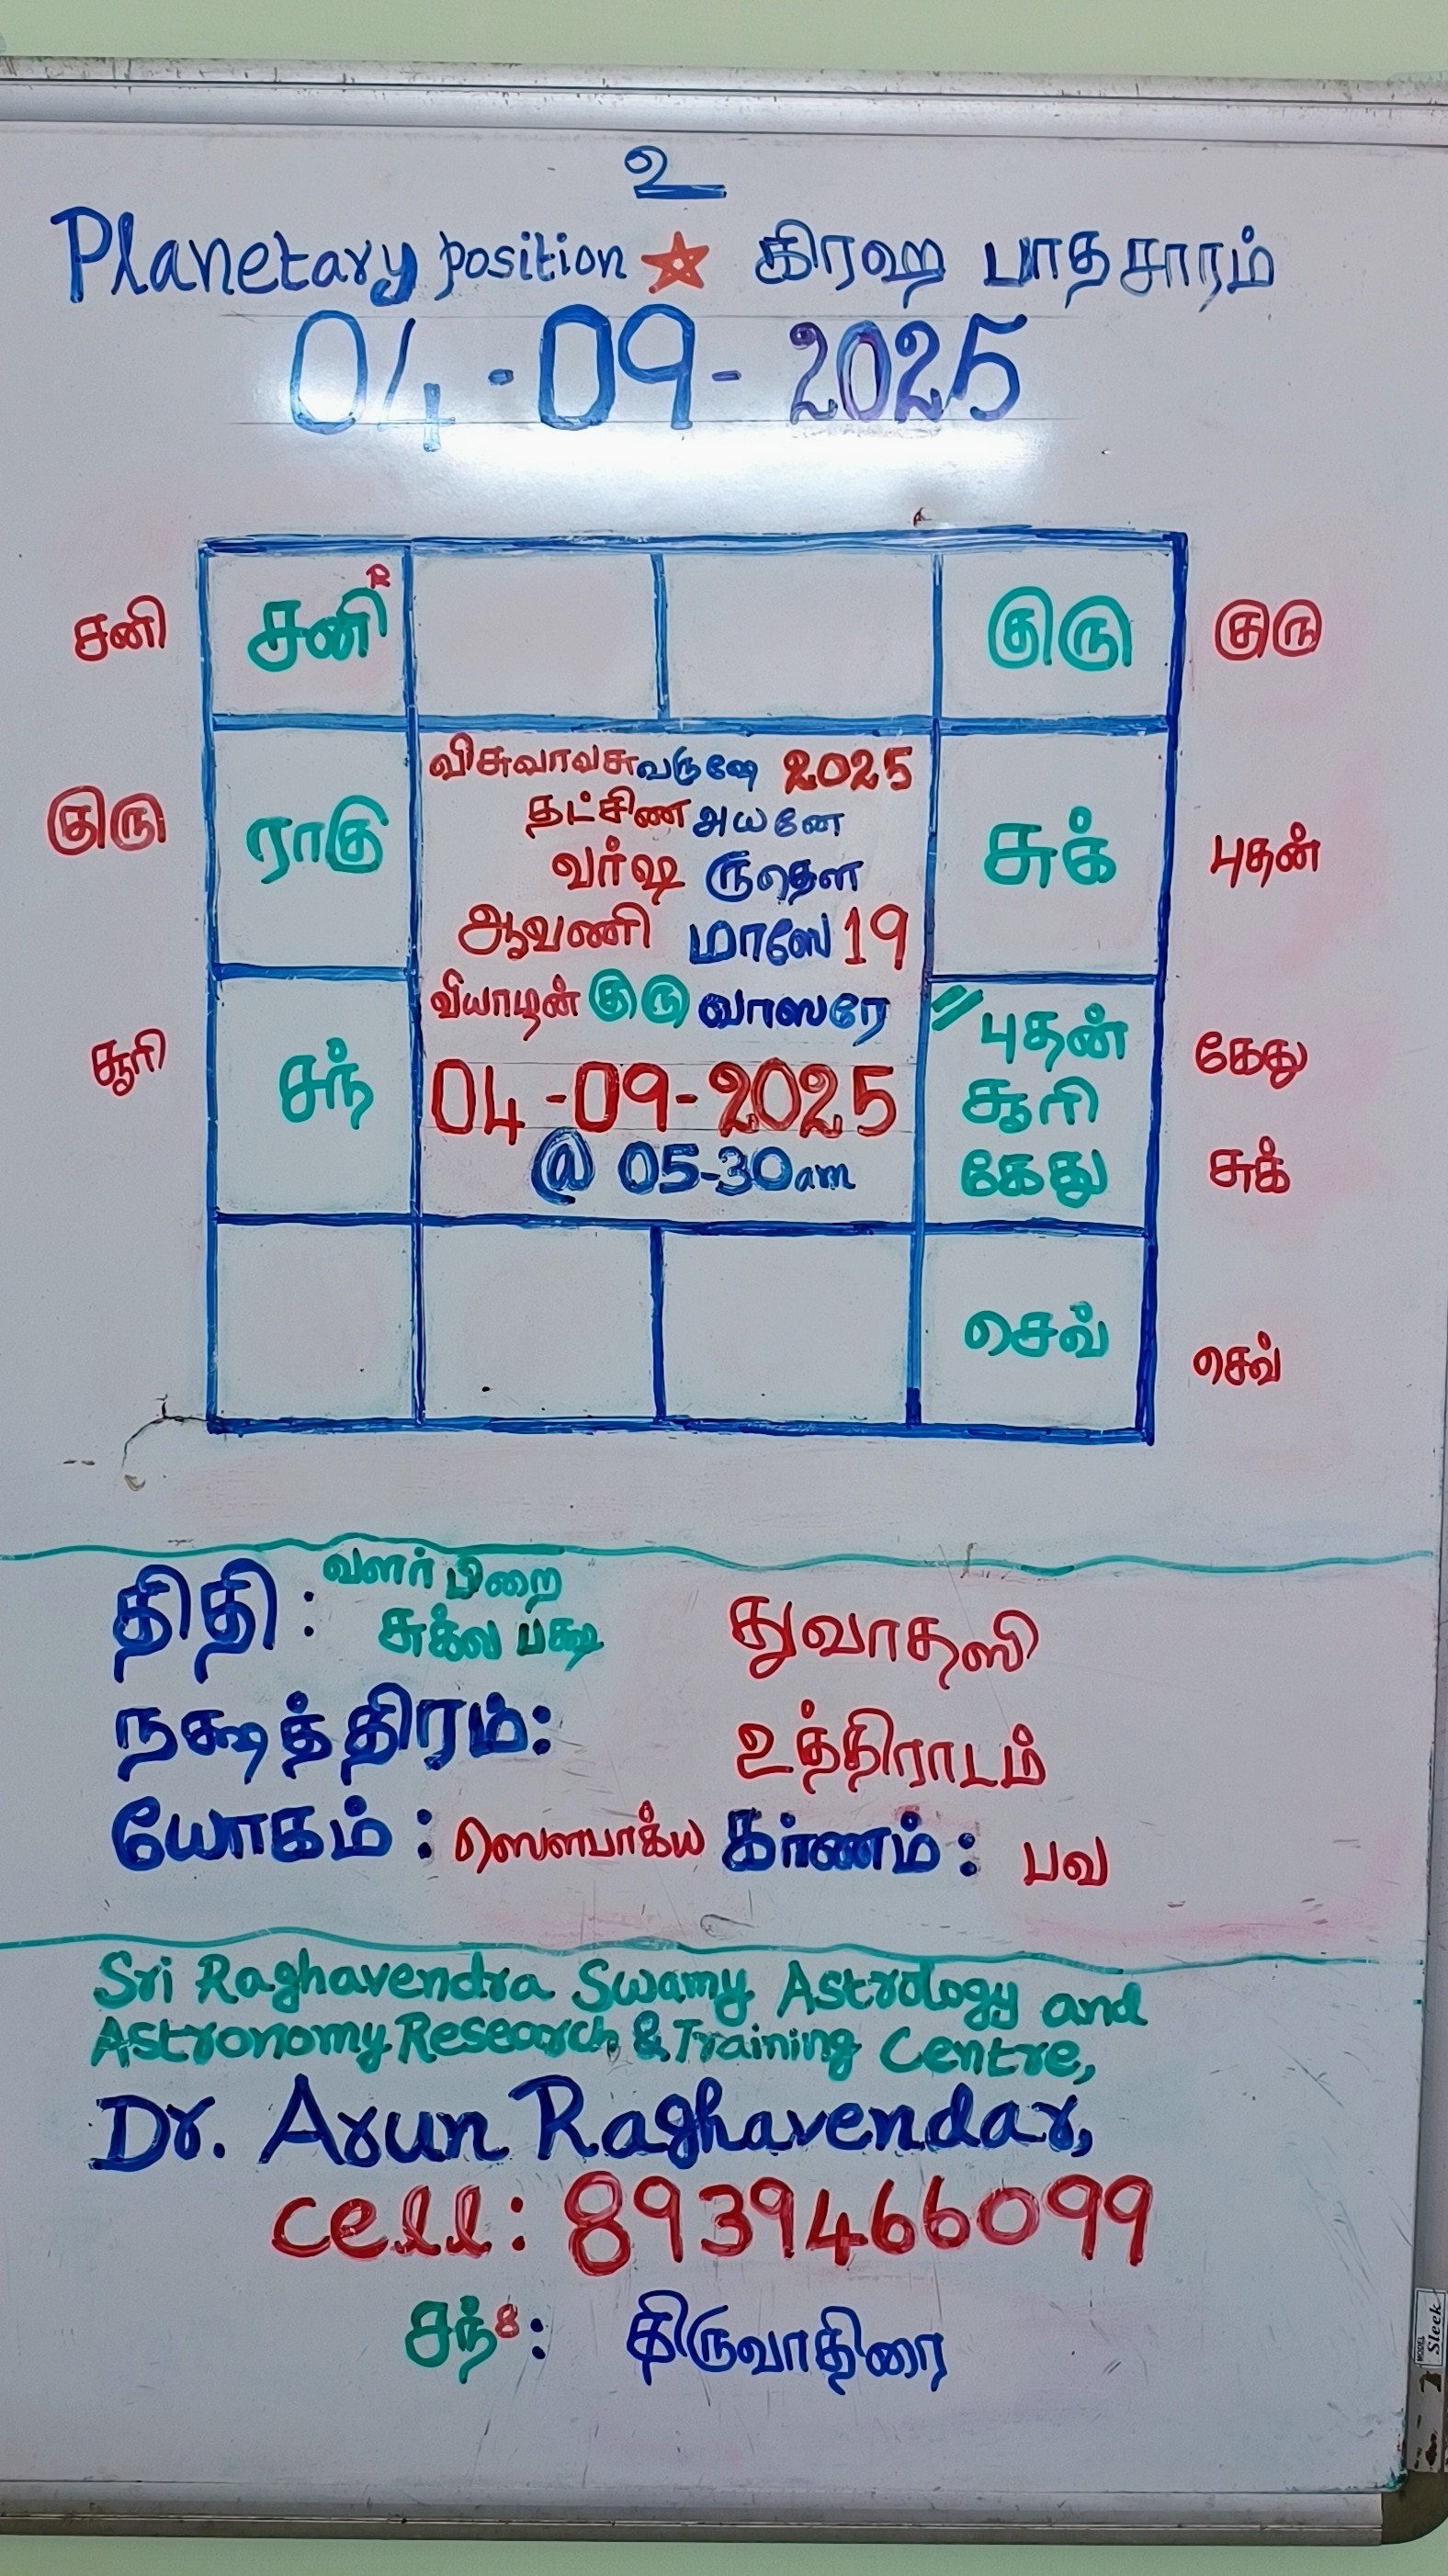 உ
Planetary position ☆ கிரஹ பாதசாரம்
04-09-2025
சனி சனி R குரு குரு
விசுவாவசுவருஷே 2025
தட்சிண அயனே
குரு ராகு வர்ஷ ருதௌ சுக் புதன்
ஆவணி மாஸே 19
வியாழன் குரு வாஸரே
சூரி சந் 04-09-2025 // புதன் சூரி கேது கேது சுக்
@ 05-30am
செவ் செவ்
திதி: வளர் பிறை சுக்ல பக்ஷ துவாதஸி
நக்ஷத்திரம்: உத்திராடம்
யோகம்: ஸௌபாக்ய கர்ணம்: பவ
Sri Raghavendra Swamy Astrology and
Astronomy Research & Training Centre,
Dr. Arun Raghavendar,
cell: 8939466099
சந்8: திருவாதிரை
MODEL Sleek